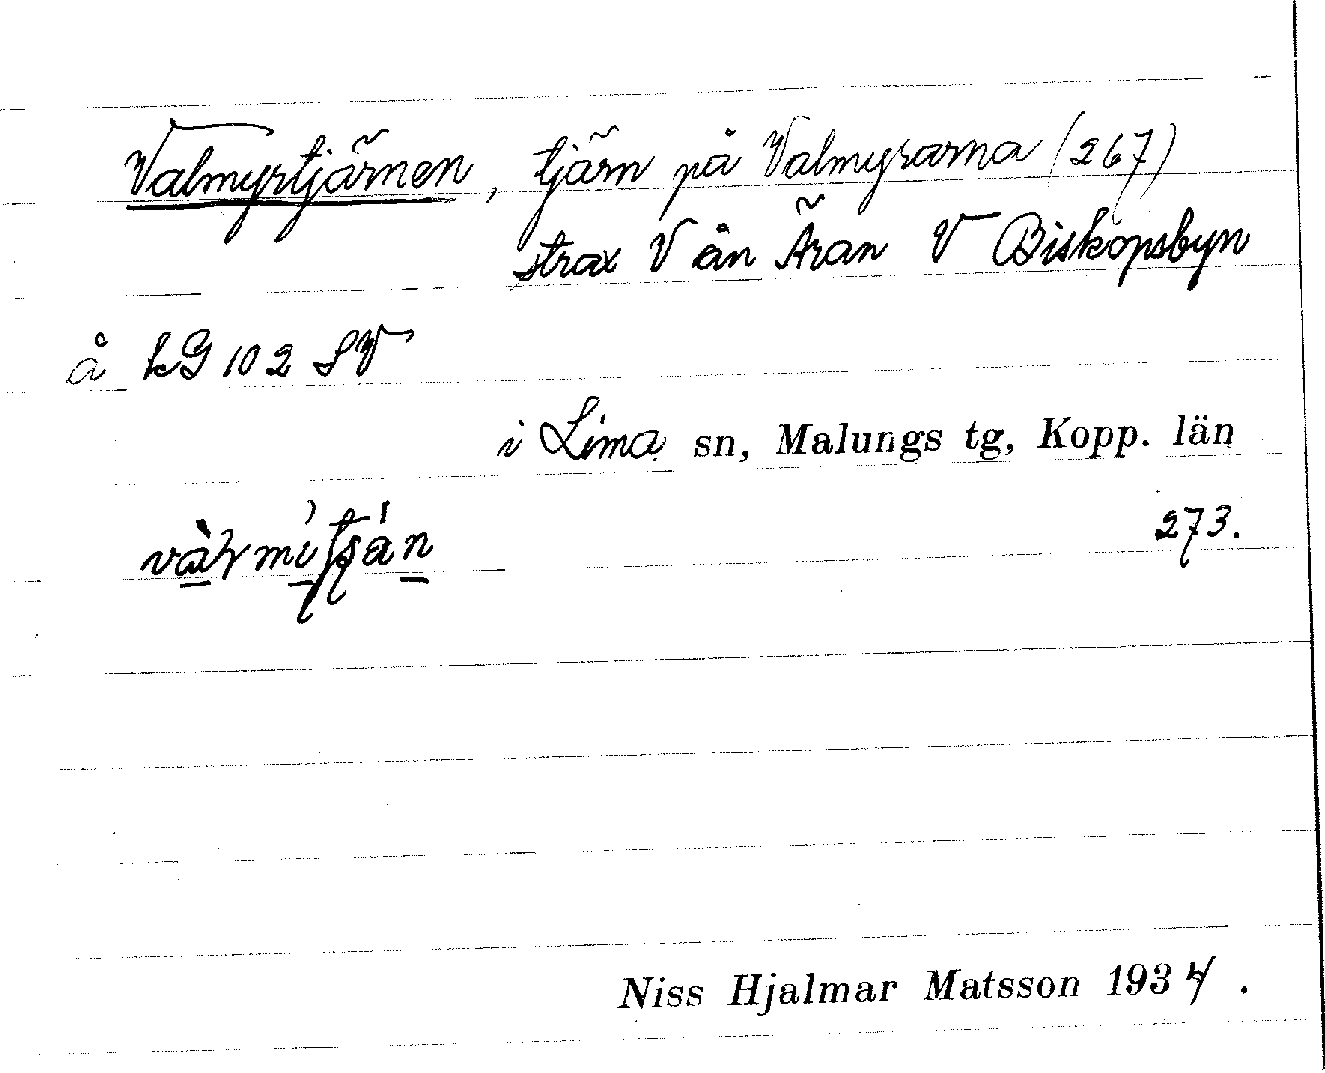 Valmyrtjärnen, tjärn på Valmyrarna (267)
strax V ån Äran V Biskopsbyn
å kG 102 SV
i Lima sn, Malungs tg, Kopp. län
273.
Niss Hjalmar Matsson 1934.